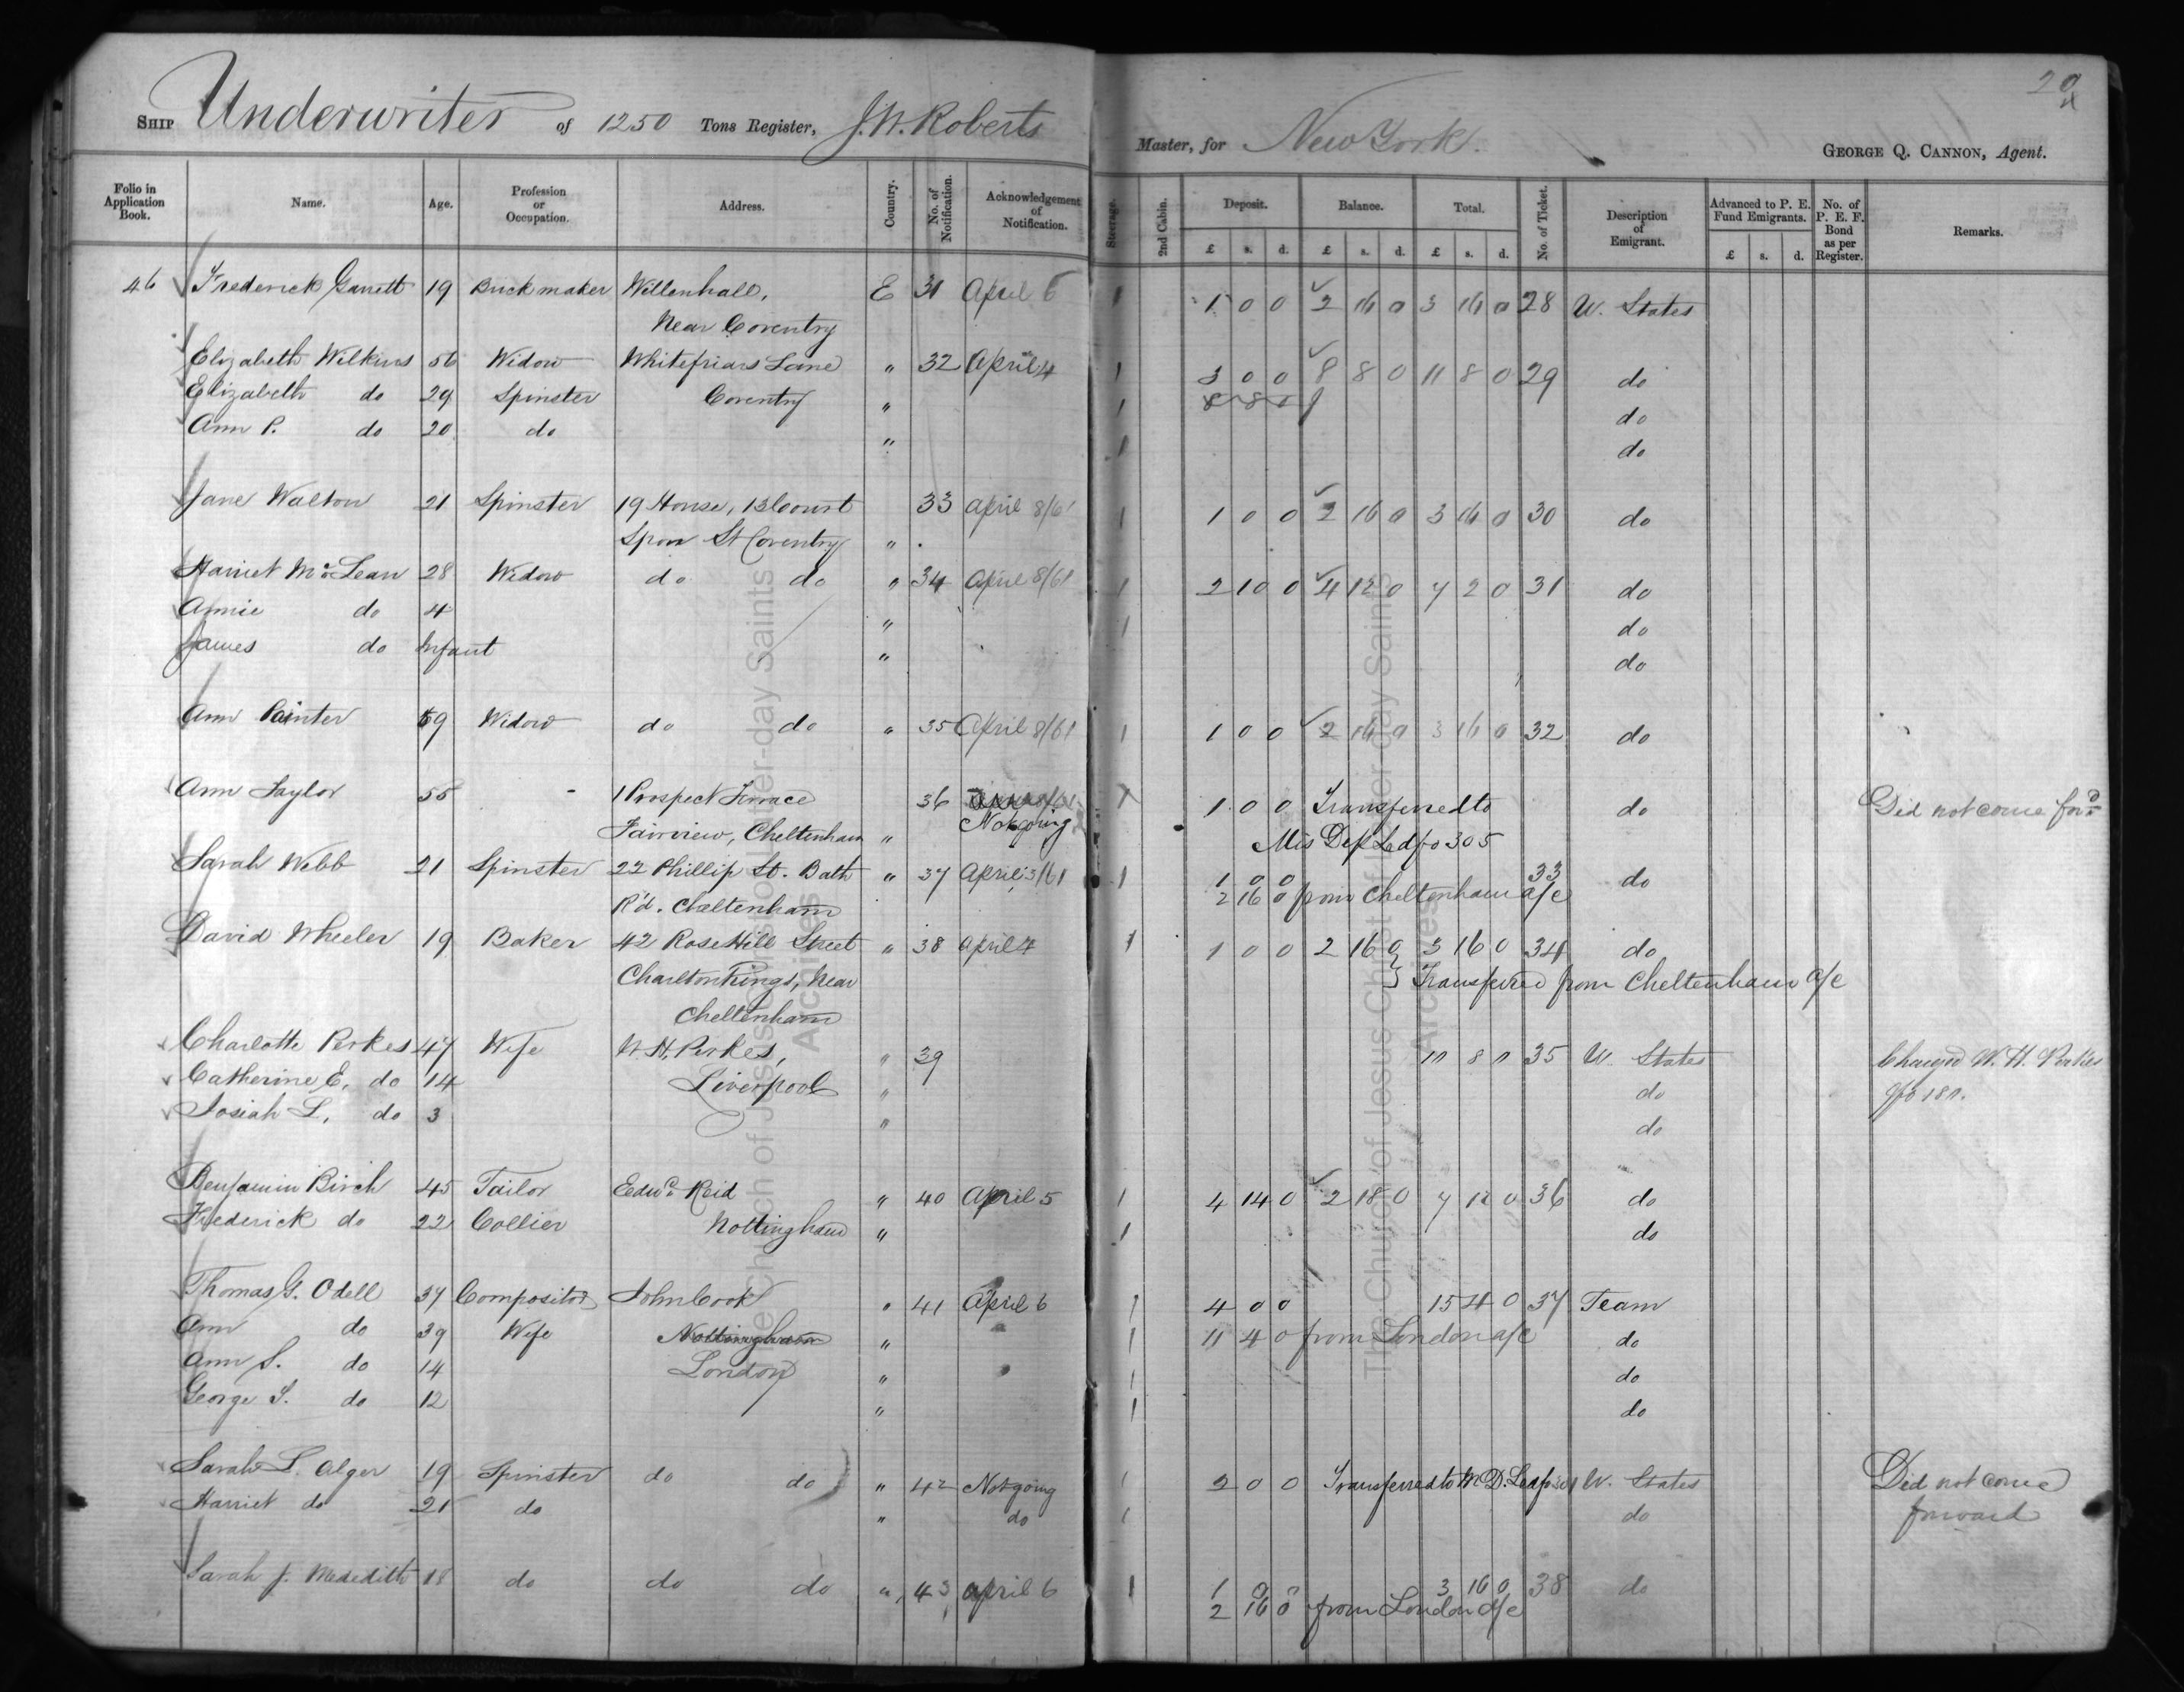 29
SHIP Underwriter of 1250 Tons Register, J.W. Roberts Master, for New York.
GEORGE Q. CANNON, Agent.
Folio in Application Book. Name. Age. Profession or Occupation. Address. Country. No. of Notification. Acknowledgement of Notification. Steerage. 2nd Cabin. Deposit. Balance. Total. No. of Ticket. Description of Emigrant. Advanced to P. E. Fund Emigrants. No. of P. E. F. Bond as per Register. Remarks.
£ s. d. £ s. d. £ s. d. £ s. d.
46 Frederick Garrett 19 Brickmaker Willenhall, E 31 April 6 1 1 0 0 2 16 0 3 16 0 28 U. States
Near Coventry
Elizabeth Wilkins 56 Widow Whitefriars Lane " 32 April 4 1 3 0 0 8 8 0 11 8 0 29 do
Elizabeth do 29 Spinster Coventry " 1 8 8 0 do
Ann P. do 20 do " 1 do
Jane Walton 21 Spinster 19 House, 13 Court 33 April 8/61 1 1 0 0 2 16 0 3 16 0 30 do
Spon St Coventry "
Harriet McLean 28 Widow do do " 34 April 8/61 1 2 10 0 4 12 0 7 2 0 31 do
Annie do 4 " 1 do
James do Infant " do
Ann Painter 59 Widow do do " 35 April 8/61 1 1 0 0 2 16 0 3 16 0 32 do
Ann Taylor 55 - 1 Prospect Terrace 36 1 0 0 Transferred to do Did not come ford
Fairview, Cheltenham " Not going Mis Dep Led fo 305
Sarah Webb 21 Spinster 22 Phillip St. Bath " 37 April 3/61 1 1 0 0 33 do
R'd. Cheltenham 2 16 0 from Cheltenham a/c
David Wheeler 19 Baker 42 Rose Hill Street " 38 April 4 1 1 0 0 2 16 0 3 16 0 34 do
Charlton Kings, Near } Transferred from Cheltenham a/c
Cheltenham
Charlotte Perkes 47 Wife W.H. Perkes, " 39 8 0 35 U. States W. H. Perkes
Catherine E. do 14 Liverpool " do
Josiah L. do 3 " do
Benjamin Birch 45 Tailor Edwd. Reid " 40 April 5 1 4 14 0 2 18 0 7 12 0 36 do
Frederick do 22 Collier Nottingham " 1 do
Thomas G. Odell 37 Compositor John Cook " 41 April 6 1 4 0 0 15 4 0 37 Team
Ann do 39 Wife Nottingham " 1 11 4 0 from London a/c do
Ann S. do 14 London " 1 do
George T. do 12 " 1 do
Sarah L. Alger 19 Spinster do do " 42 Not going 1 2 0 0 Transferred to M.D. Led fo U. States Did not come
Harriet do 21 do " do 1 do forward
Sarah J. Meredith 18 do do do " 43 April 6 1 1 0 0 3 16 0 38 do
2 16 0 from London a/c
The Church of Jesus Christ of Latter-day Saints
Archives
The Church of Jesus Christ of Latter-day Saints
Archives